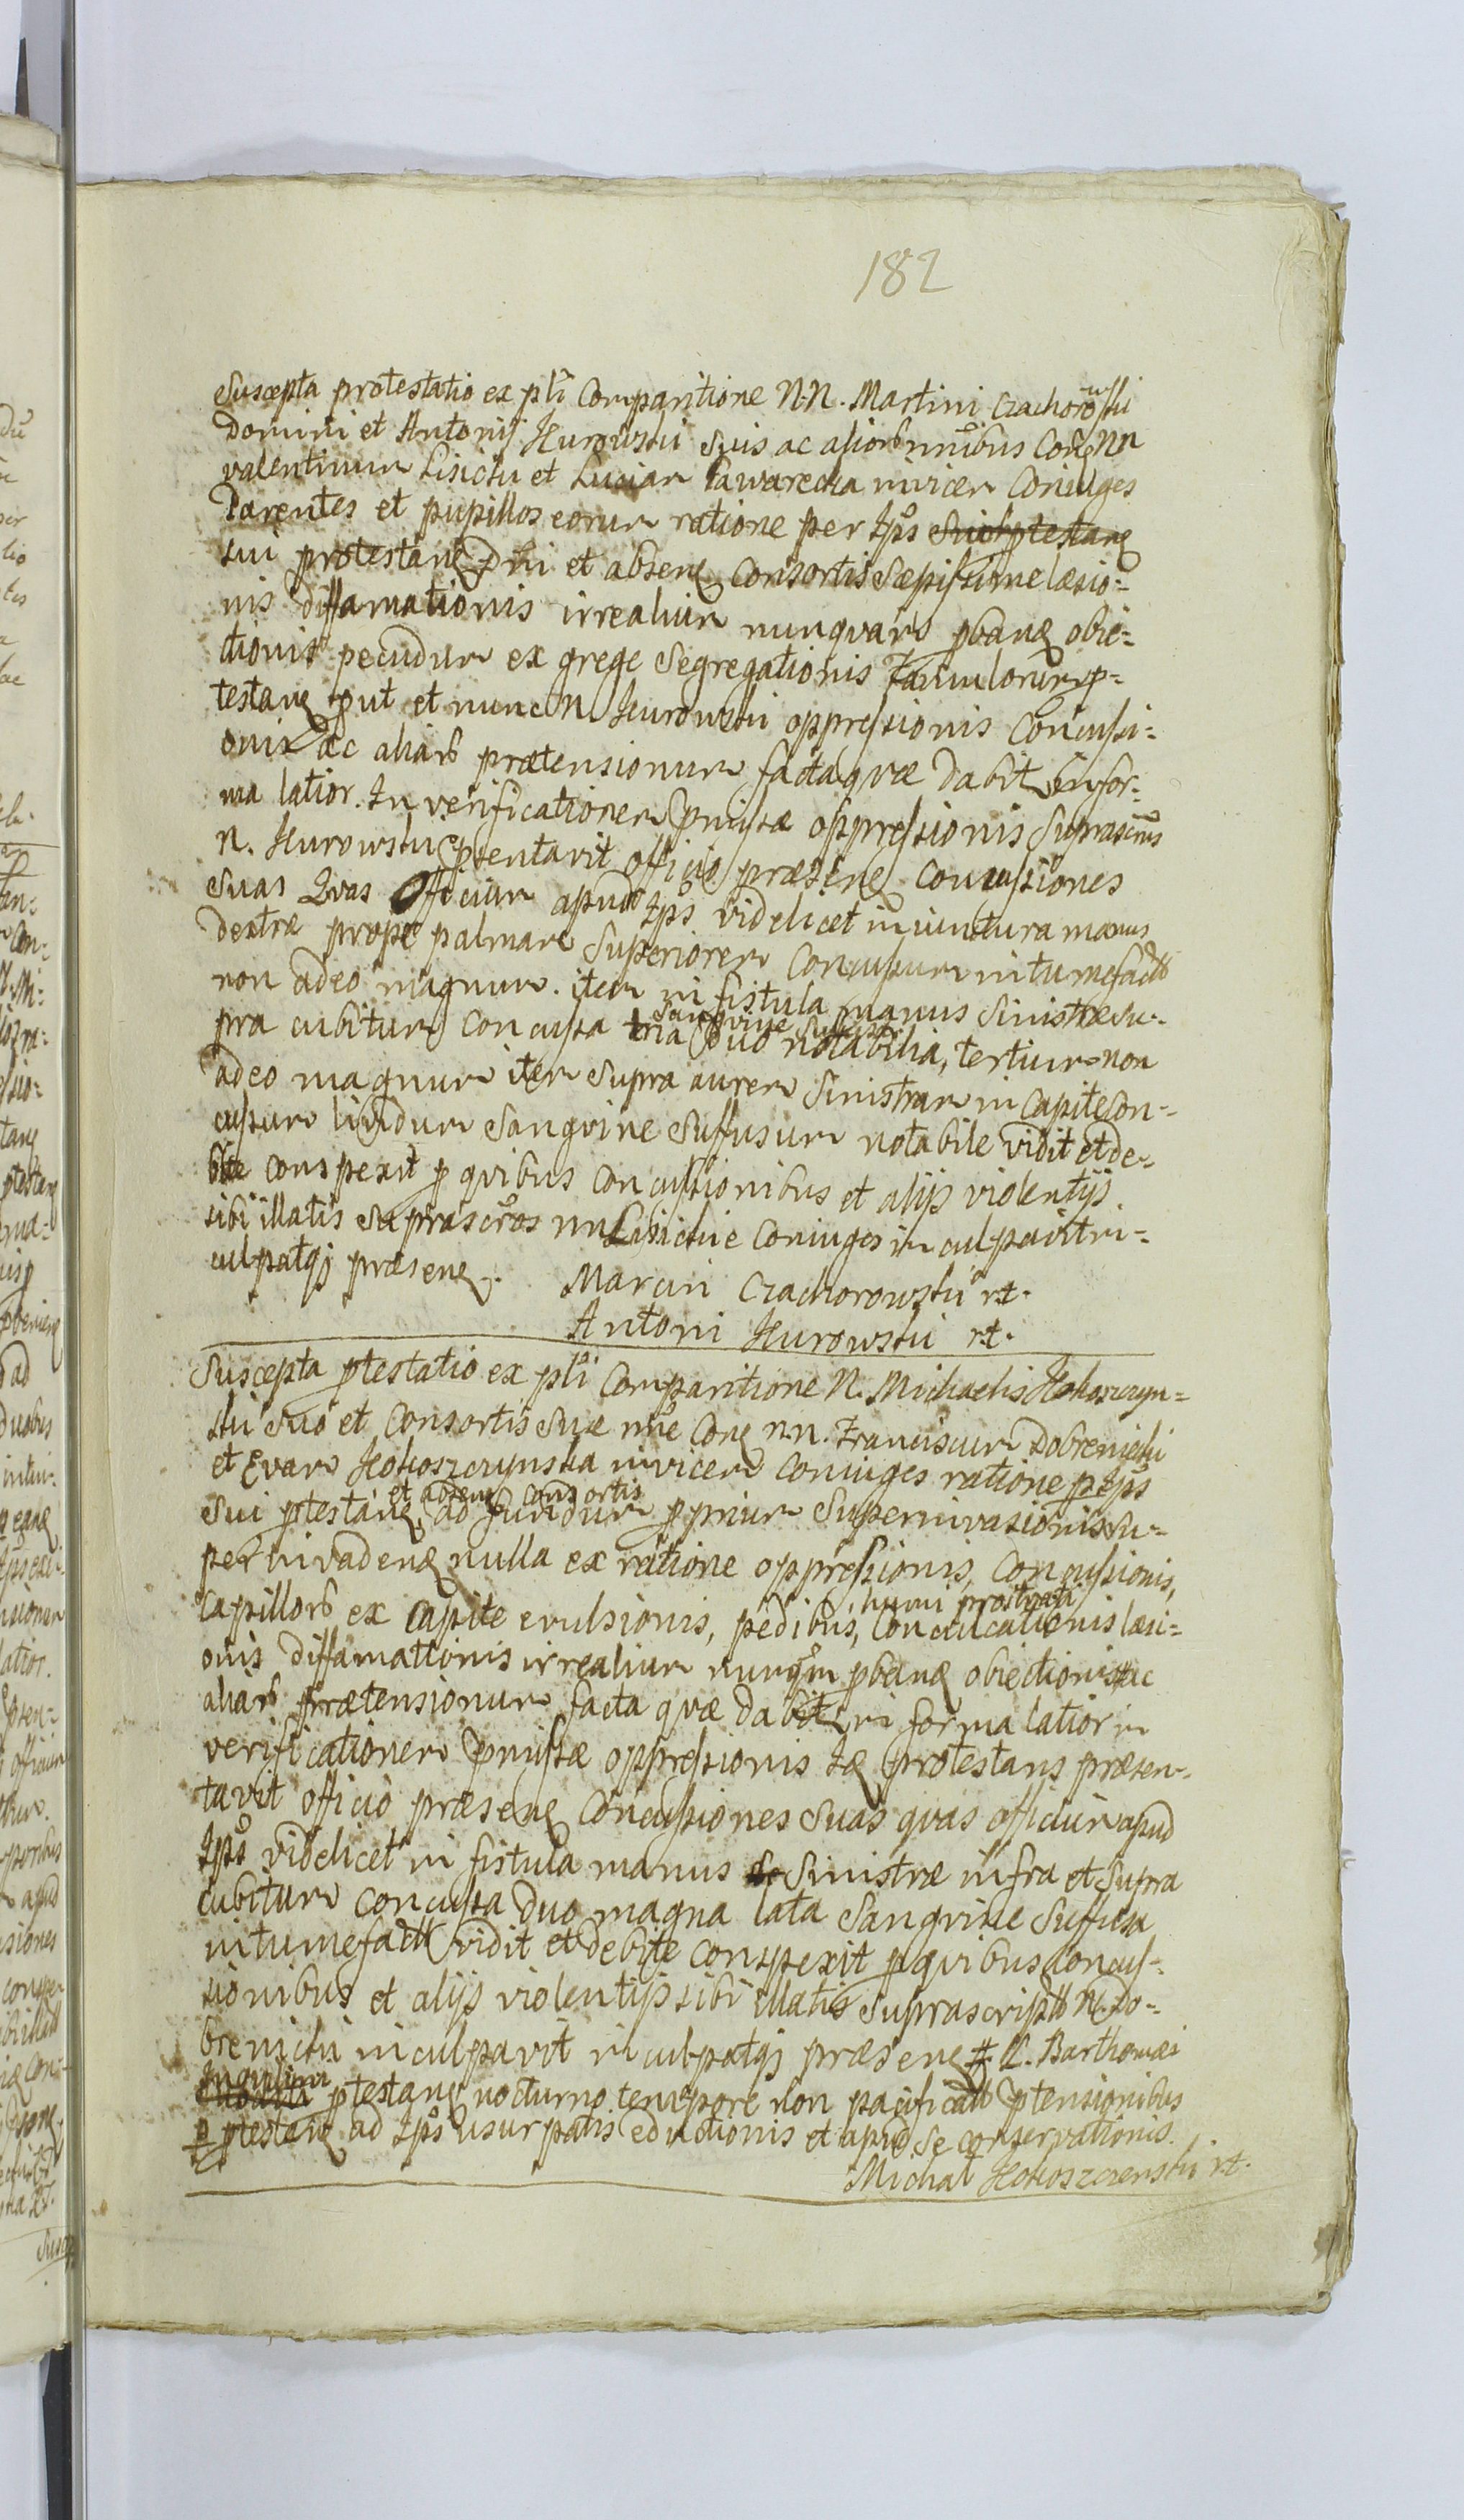 182
Suscepta protestatio ex płi Comparitione N.N. Martini Czachorowski
Domini et Antonij Hurowski Suis ac alior nnibus Con NN
valentinum Lisicki et Luciam Sawarecka invicem Coniuges
Parentes et pupillos eorum ratione per Ips Suić ptestan
sui protestan Dni et absen Consortis Sæpissime læsio-
nis diffamationis irrealium nunquam pban obie-
ctionis pecudum ex grege Segregationis Famulorum p-
testan put et nunc N. Hurowski oppressionis Concussi-
onis ac aliar prætensionum facta quæ dabit in for-
ma latior. In verificationem pmissæ oppressionis Suprascrus
N. Hurowski pñtentavit officio præsen Concussiones
suas Qvas Officium apud Ips videlicet in iunctura manus
dextræ prope palmam Superiorem Concussum intumefactt
non adeo magnum. item in fistula manus Sinistræ su-
pra cubitum concussa tria Sangvine Suffusa duo notabilia, tertium non
adeo magnum item supra aurem Sinistram in Capite con-
cussum lividum Sangvine Suffusum notabile vidit et de-
bite conspexit p qvibus Concussionibus et alijs violentijs
sibi illatis suprascros NN Lisickie Coniuges inculpavit in-
culpatq præsen.
Marcin Czachorowski rt.
Antoni Hurowski rt.
Suscepta ptestatio ex płi Comparitione N. Michaelis Hohoszczyn-
ski Suo et Consortis Suæ nne Con n.n. Franciscum Dobrenicki
et Evam Hohoszczynska invicem coniuges ratione p Ips
sui ptestan et absen Consortis ad fundum pprium Supeninvasionis su-
per invaden nulla ex ratione oppressionis, Concussionis,
Capillor ex Capite evulsionis, pedibus, humi prostrati Conculcationis læsi-
onis diffamationis irrealium nunqm pban obiectionis ac
aliar prætensionum facta quæ dabit in forma latior in
verificationem pmissæ oppressionis Id protestans præsen-
tavit officio præsen Concussiones Suas qvas officium apud
Ips videlicet in fistula manus Sinistræ infra et Supra
cubitum concussa duo magna lata Sangvine Suffusa
intumefactt vidit et debite conspexit p qvibus Concus-
sionibus et alijs violentijs sibi illatis Suprascriptt N. Do-
brenicki inculpavit inculpatq præsen # L. Barthomæi
Inqvilini ptestan nocturno tempore non pacificatt ptensionibus
# ptestan ad Ips usurpatis eductionis et apud se conservationis.
Michał Hohoszczenski rt.